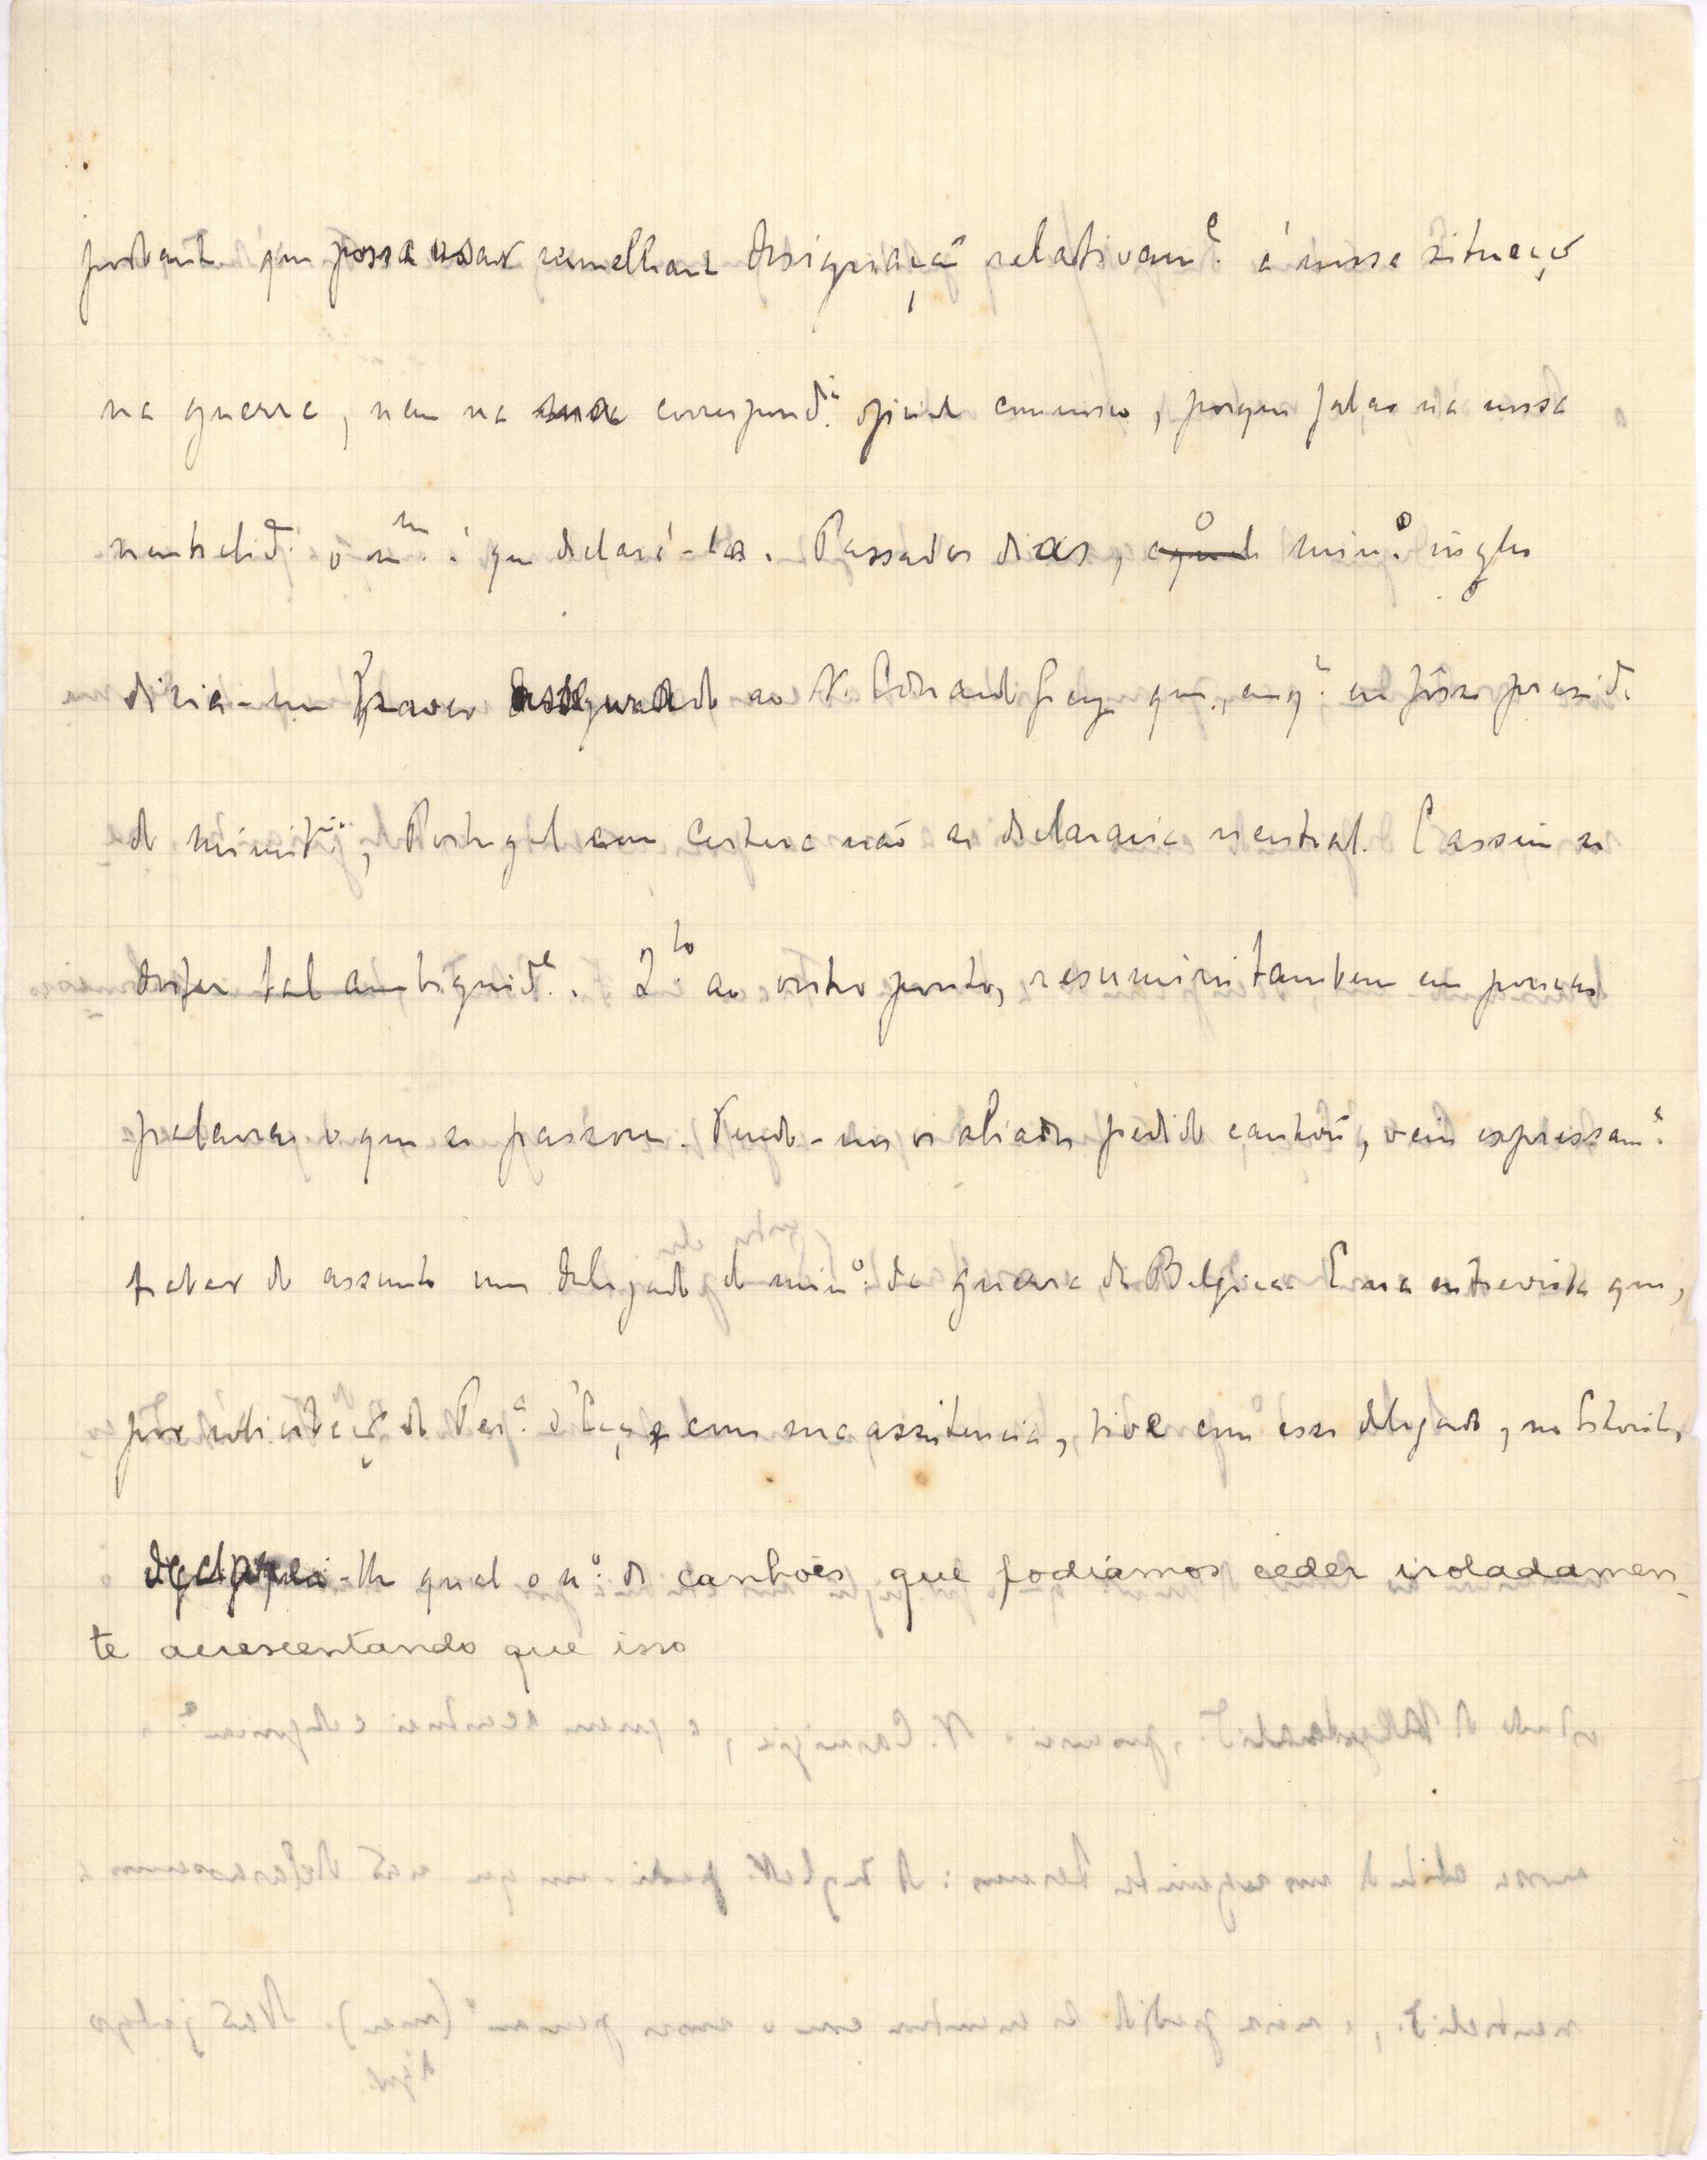 portanto que possa usar semelhante designação relativam.e á nossa situação
na guerra, nem na sua correspond.a oficial comnosco, porque falar na nossa
neutralid.e o m.mo é que declará-la. Passados dias, o min.o inglês
dizia-me haver assegurado ao S. Edward Grey que, emq.to eu fôsse presid.
do ministério, Portugal com certeza não se declararia neutral. E assim se
desfez tal ambiguid.e. Q.to ao outro ponto, resumirei tambem em poucas
palavras o que se passou. Tendo-nos os aliados pedido canhões, veiu expressam.e
tratar do assunto um delegado do min.o da guerra da Belgica. E na entrevista que,
por solicitação do Per.a d'Eça e com sua assistencia, tive com esse delegado, no Estoril,
declarei-lhe qual o n.o de canhões que podiamos ceder isoladamen-
te acrescentando que isso